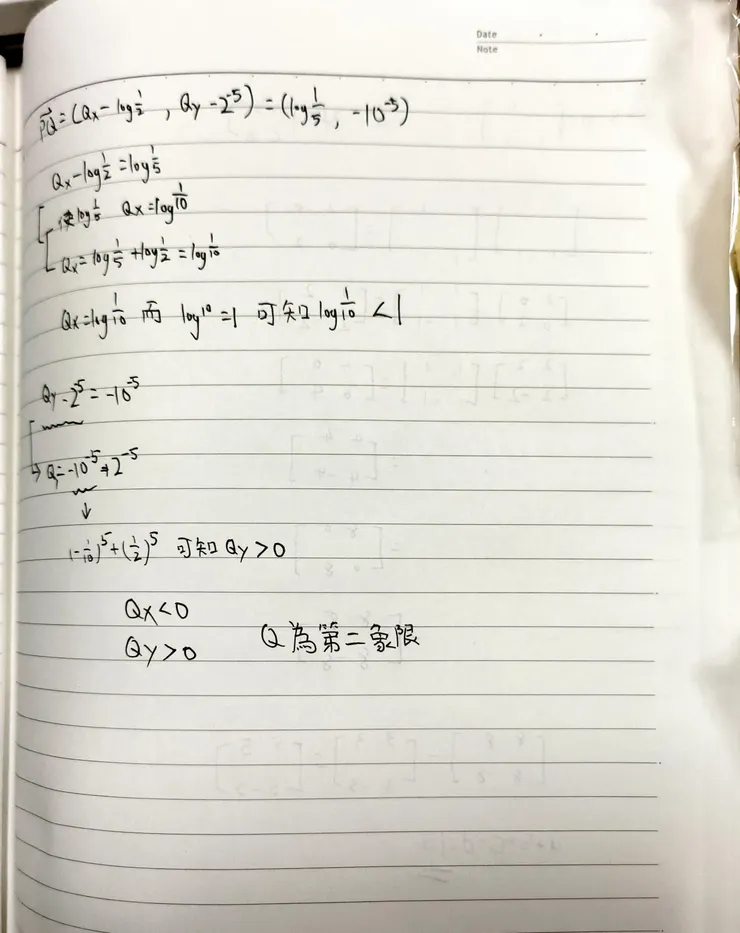 Date
Note
PQ = (Qx - log 1/2 , Qy - 2^-5) = (log 1/5 , -10^-5)
Qx - log 1/2 = log 1/5
log 1/5 Qx = log 1/10
Qx = log 1/5 + log 1/2 = log 1/10
Qx = log 1/10 而 log 10 = 1 可知 log 1/10 < 1
Qy - 2^-5 = -10^-5
→ Q = -10^-5 + 2^-5
↓
(-1/10)^5 + (1/2)^5 可知 Qy > 0
Qx < 0
Qy > 0 Q為第二象限